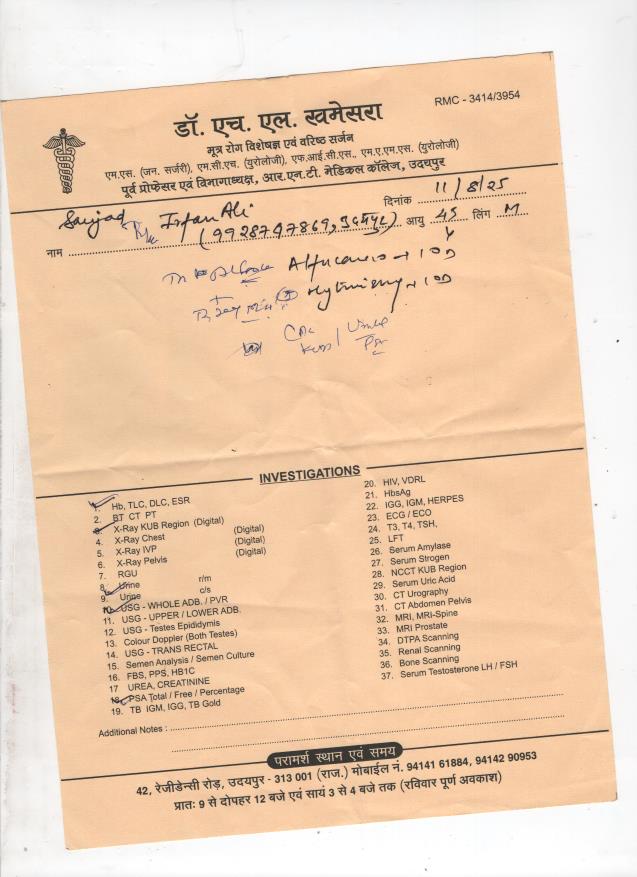 RMC - 3414/3954
डॉ. एच. एल. खमेसरा
मूत्र रोग विशेषज्ञ एवं वरिष्ठ सर्जन
एम.एस. (जन. सर्जरी), एम.सी.एच. (युरोलोजी), एफ.आई.सी.एस., एम.ए.एम.एस. (युरोलोजी)
पूर्व प्रोफेसर एवं विभागाध्यक्ष, आर.एन.टी. मेडिकल कॉलेज, उदयपुर
दिनांक 11/8/25
नाम Irfan Ali
(9928747869, उदयपुर) आयु 45 लिंग M
INVESTIGATIONS
1. Hb, TLC, DLC, ESR
2. BT CT PT
3. X-Ray KUB Region (Digital)
4. X-Ray Chest (Digital)
5. X-Ray IVP (Digital)
6. X-Ray Pelvis (Digital)
7. RGU
8. Urine r/m
9. Urine c/s
10. USG - WHOLE ADB. / PVR
11. USG - UPPER / LOWER ADB.
12. USG - Testes Epididymis
13. Colour Doppler (Both Testes)
14. USG - TRANS RECTAL
15. Semen Analysis / Semen Culture
16. FBS, PPS, HB1C
17 UREA, CREATININE
18. PSA Total / Free / Percentage
19. TB IGM, IGG, TB Gold
20. HIV, VDRL
21. HbsAg
22. IGG, IGM, HERPES
23. ECG / ECO
24. T3, T4, TSH,
25. LFT
26. Serum Amylase
27. Serum Strogen
28. NCCT KUB Region
29. Serum Uric Acid
30. CT Urography
31. CT Abdomen Pelvis
32. MRI, MRI-Spine
33. MRI Prostate
34. DTPA Scanning
35. Renal Scanning
36. Bone Scanning
37. Serum Testosterone LH / FSH
Additional Notes :
परामर्श स्थान एवं समय
42, रेजीडेन्सी रोड़, उदयपुर - 313 001 (राज.) मोबाईल नं. 94141 61884, 94142 90953
प्रातः 9 से दोपहर 12 बजे एवं सायं 3 से 4 बजे तक (रविवार पूर्ण अवकाश)